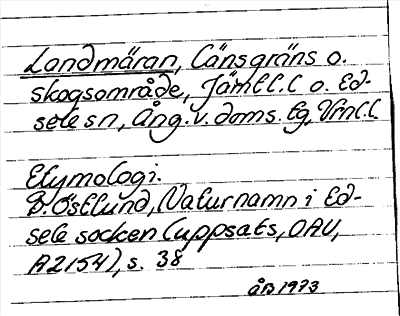 Landmäran, Länsgräns o.
skogsområde, Jämtl. l. o. Ed-
sele sn, Ång. v. doms. tg, Vnl. l.
Etymologi.
D. Östlund, Naturnamn i Ed-
sele socken (uppsats, OAU,
A2154), s. 38
ÅB 1973